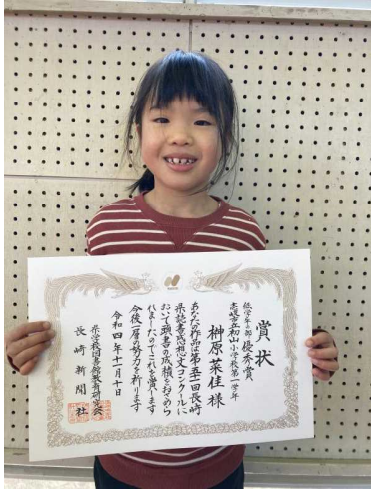 賞状
低学年の部 優秀賞
壱岐市立初山小学校第一学年
榊原菜佳様
あなたの作品は第五十一回長崎
県読書感想文コンクールに
おいて頭書の成績をおさめら
れましたのでこれを賞します
今後一層の努力を祈ります
令和四年十一月十日
県学校図書館教育研究会
長崎新聞社